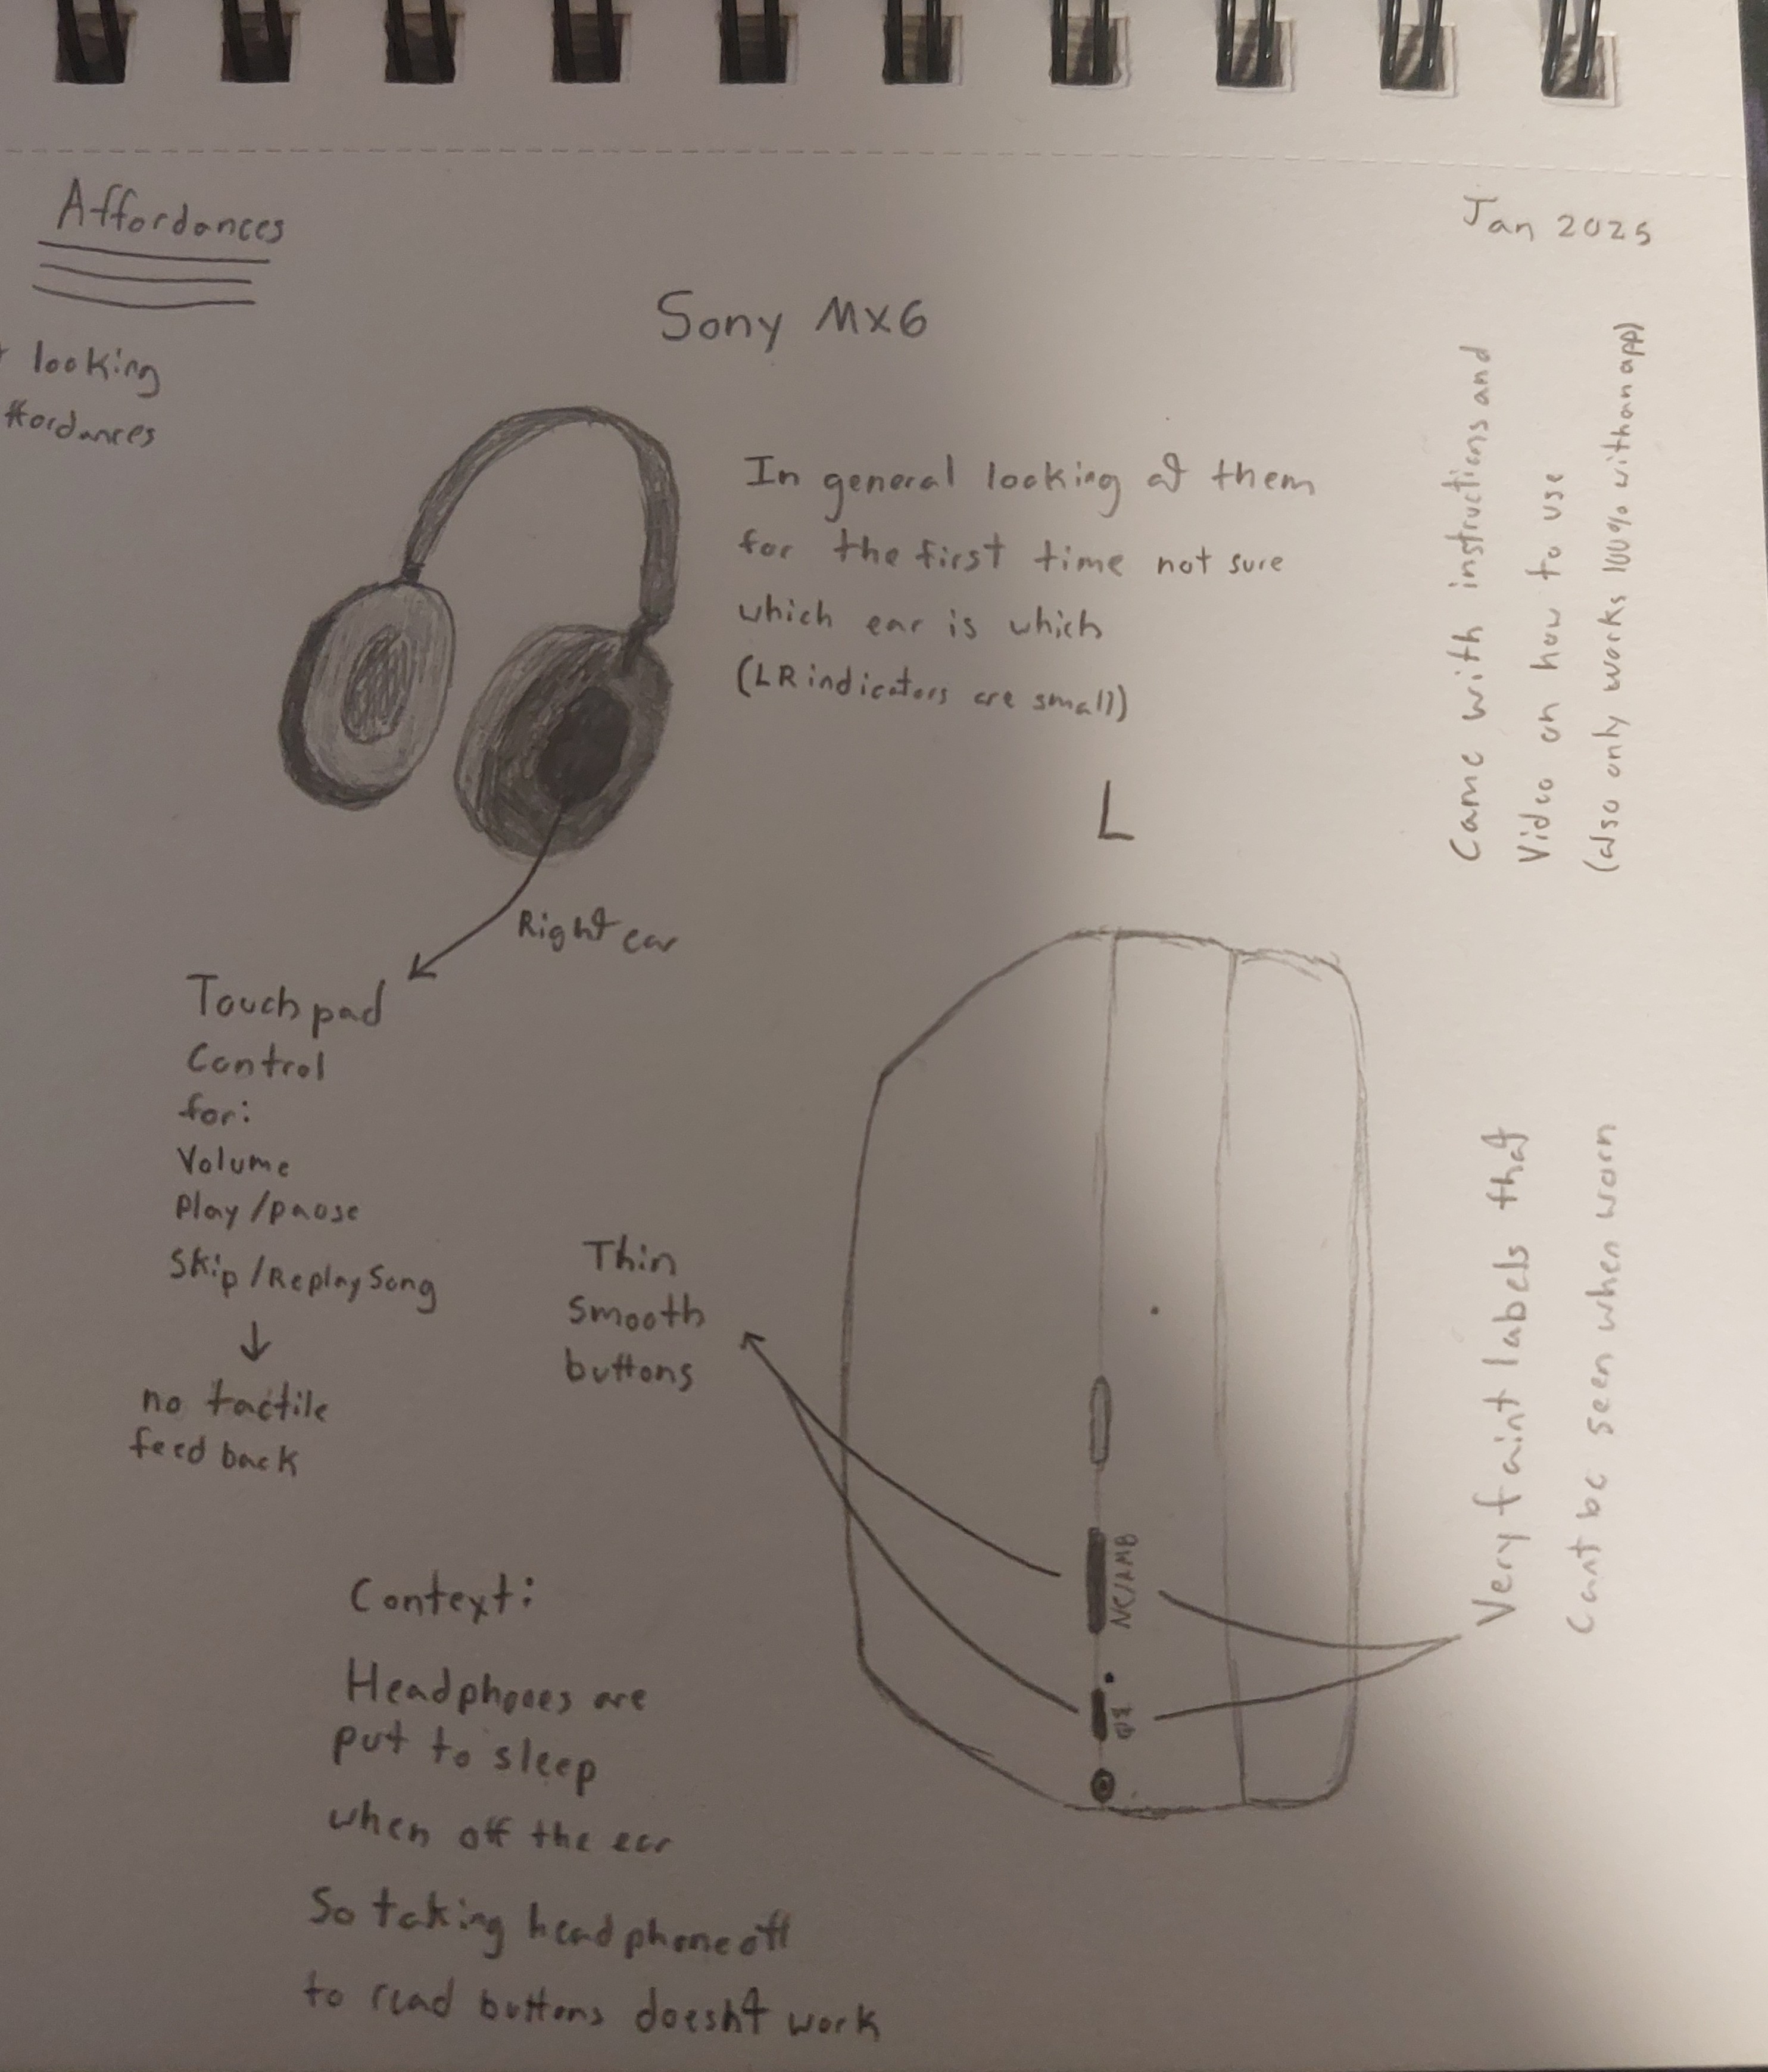 Affordances
looking
ffordances
Jan 2025
Sony MX6
In general looking at them
for the first time not sure
which ear is which
(LR indicators are small)
Came with instructions and
Video on how to use
(also only works 100% with an app)
Right ear
Touch pad
Control
for:
Volume
Play/pause
Skip/Replay Song
no tactile
feed back
L
Thin
smooth
buttons
NC/AMB
Very faint labels that
cant be seen when worn
Context:
Headphones are
put to sleep
when off the ear
So taking headphone off
to read buttons doesn't work